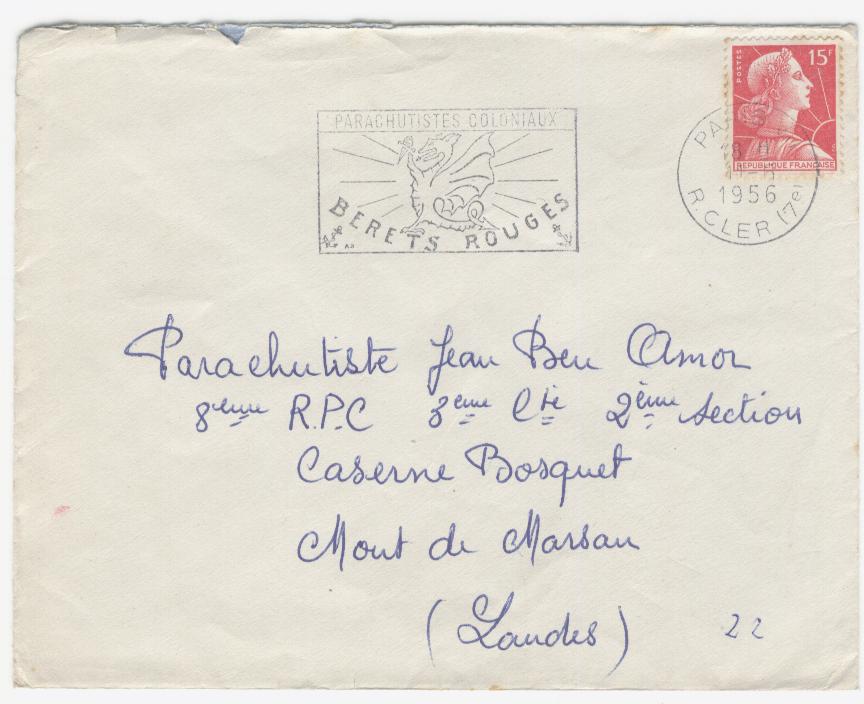 POSTES
15F
REPUBLIQUE FRANCAISE
PARACHUTISTES COLONIAUX
BERETS ROUGES
1956
R. CLER (7e)
Parachutiste Jean Ben Amor
8eme R.P.C 3eme Cie 2ème section
Caserne Bosquet
Mont de Marsan
(Landes)
22